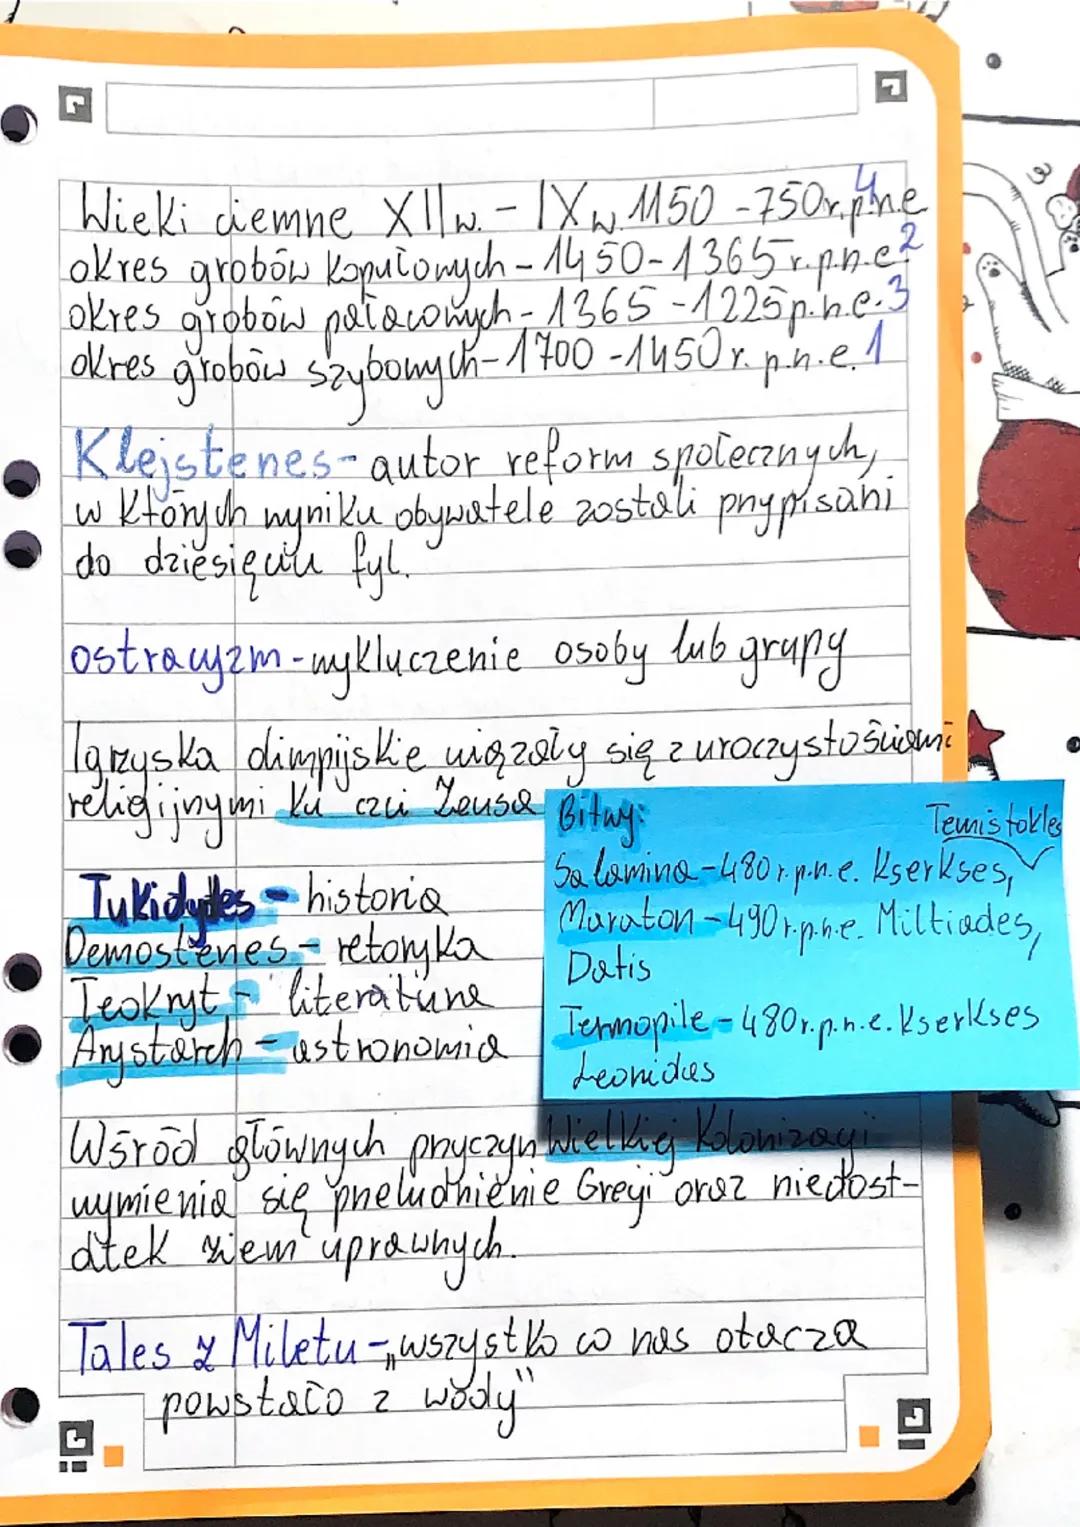 Wieki ciemne XII w. - IX w. 1150 - 750 r. p.n.e 4
okres grobów kopułowych - 1450 - 1365 r. p.n.e. 2
okres grobów pałacowych - 1365 - 1225 p.n.e. 3
okres grobów szybowych - 1700 - 1450 r. p.n.e. 1
Klejstenes - autor reform społecznych,
w których wyniku obywatele zostali przypisani
do dziesięciu fyl.
ostracyzm - wykluczenie osoby lub grupy
Igrzyska olimpijskie wiązały się z uroczystościami
religijnymi ku czci Zeusa
Tukidydes - historia
Demostenes - retoryka
Teokryt - literatura
Arystarch - astronomia
Bitwy: Temistokles
Salamina - 480 r. p.n.e. Kserkses,
Maraton - 490 r. p.n.e. Miltiades,
Datis
Termopile - 480 r. p.n.e. Kserkses
Leonidas
Wśród głównych przyczyn Wielkiej Kolonizacji
wymienia się przeludnienie Grecji oraz niedost-
atek ziem uprawnych.
Tales z Miletu - „wszystko co nas otacza
powstało z wody"